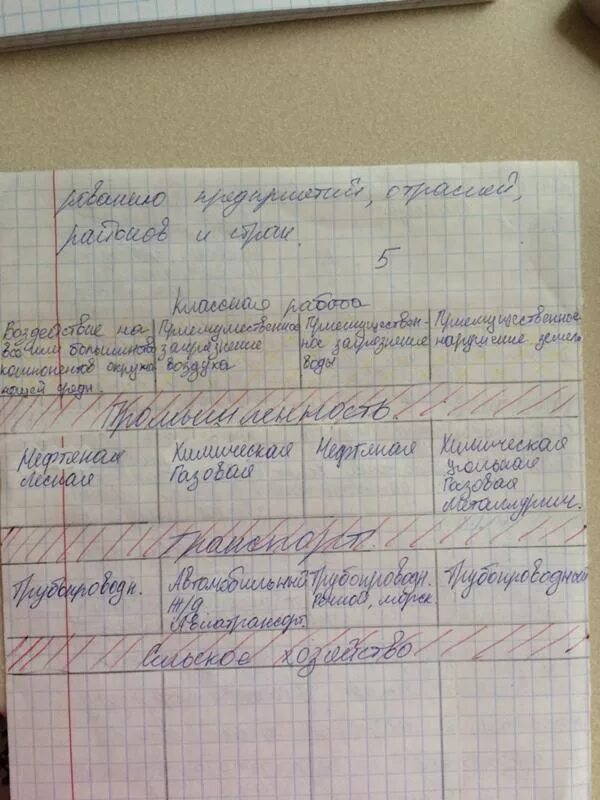 рованию предприятий, отраслей,
районов и стран.
5
Классная работа
Воздействие на
все или большинство
компонентов окружа
ющей среды.
Приемущественное
загрязнение
воздуха
Приемуществен-
ное загрязнение
воды
Приемущественное
нарушение земель
Промышленность.
Нефтяная
Лесная
Химическая
Газовая
Нефтяная
Химическая
Угольная
Газовая
Металлургич.
Транспорт.
Трубопроводн.
Автомобильный
Ж/д
Авиатранспорт.
Трубопроводн.
Речной, морск.
Трубопроводный
Сельское хозяйство